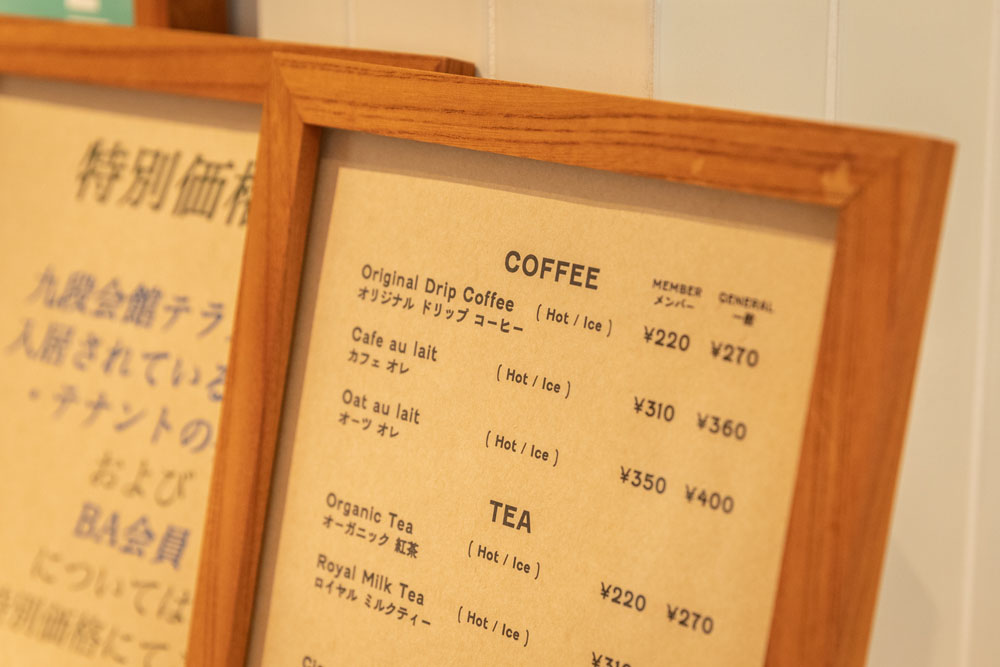 特別価格
九段会館テラ
入居されている
・テナントの
および
BA会員
については
特別価格にて
COFFEE
MEMBER GENERAL
メンバー 一般
Original Drip Coffee ( Hot / Ice )
オリジナル ドリップ コーヒー
¥220 ¥270
Cafe au lait ( Hot / Ice )
カフェ オレ
¥310 ¥360
Oat au lait ( Hot / Ice )
オーツ オレ
¥350 ¥400
TEA
Organic Tea ( Hot / Ice )
オーガニック 紅茶
¥220 ¥270
Royal Milk Tea ( Hot / Ice )
ロイヤル ミルクティー
¥310